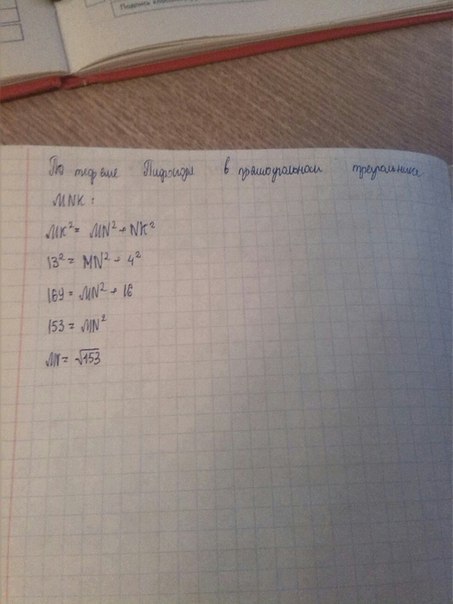 Подпись
По теореме Пифагора в прямоугольном треугольнике
MNK:
MK² = MN² + NK²
13² = MN² + 4²
169 = MN² + 16
153 = MN²
MN = √153